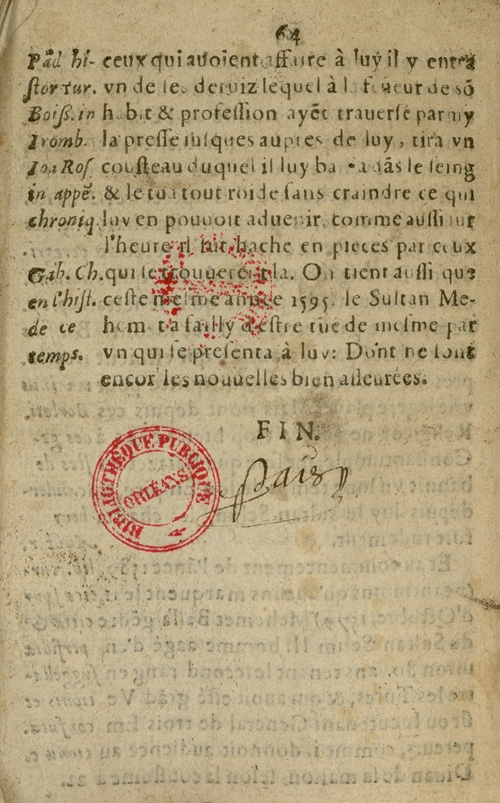 64
ceux qui auoient affaire à luy il y entra
vn de ses deruiz lequel à la faueur de sō
habit & profession ayēt trauersé parmy
la presse iusques aupres de luy, tira vn
cousteau duquel il luy dās le seing
& le tua tout roide sans craindre ce qui
luy en pouuoit aduenir, comme aussi sur
l'heure il fut haché en pieces par ceux
qui se trouuerēt la. On tient aussi que
ceste mesme année 1595. le Sultan Me-
hemet a failly d'estre tué de mesme par
vn qui se presenta à luy: Dont ne sont
encor les nouuelles bien asseurées.
Pād hi-
stor tur.
Boiss. in
Iromb.
Ioa Ros
in appē.
chroniq.
Gab. Ch.
en l'hist.
de ce
temps.
FIN.
BIBLIOTHÈQUE PUBLIQUE
ORLÉANS